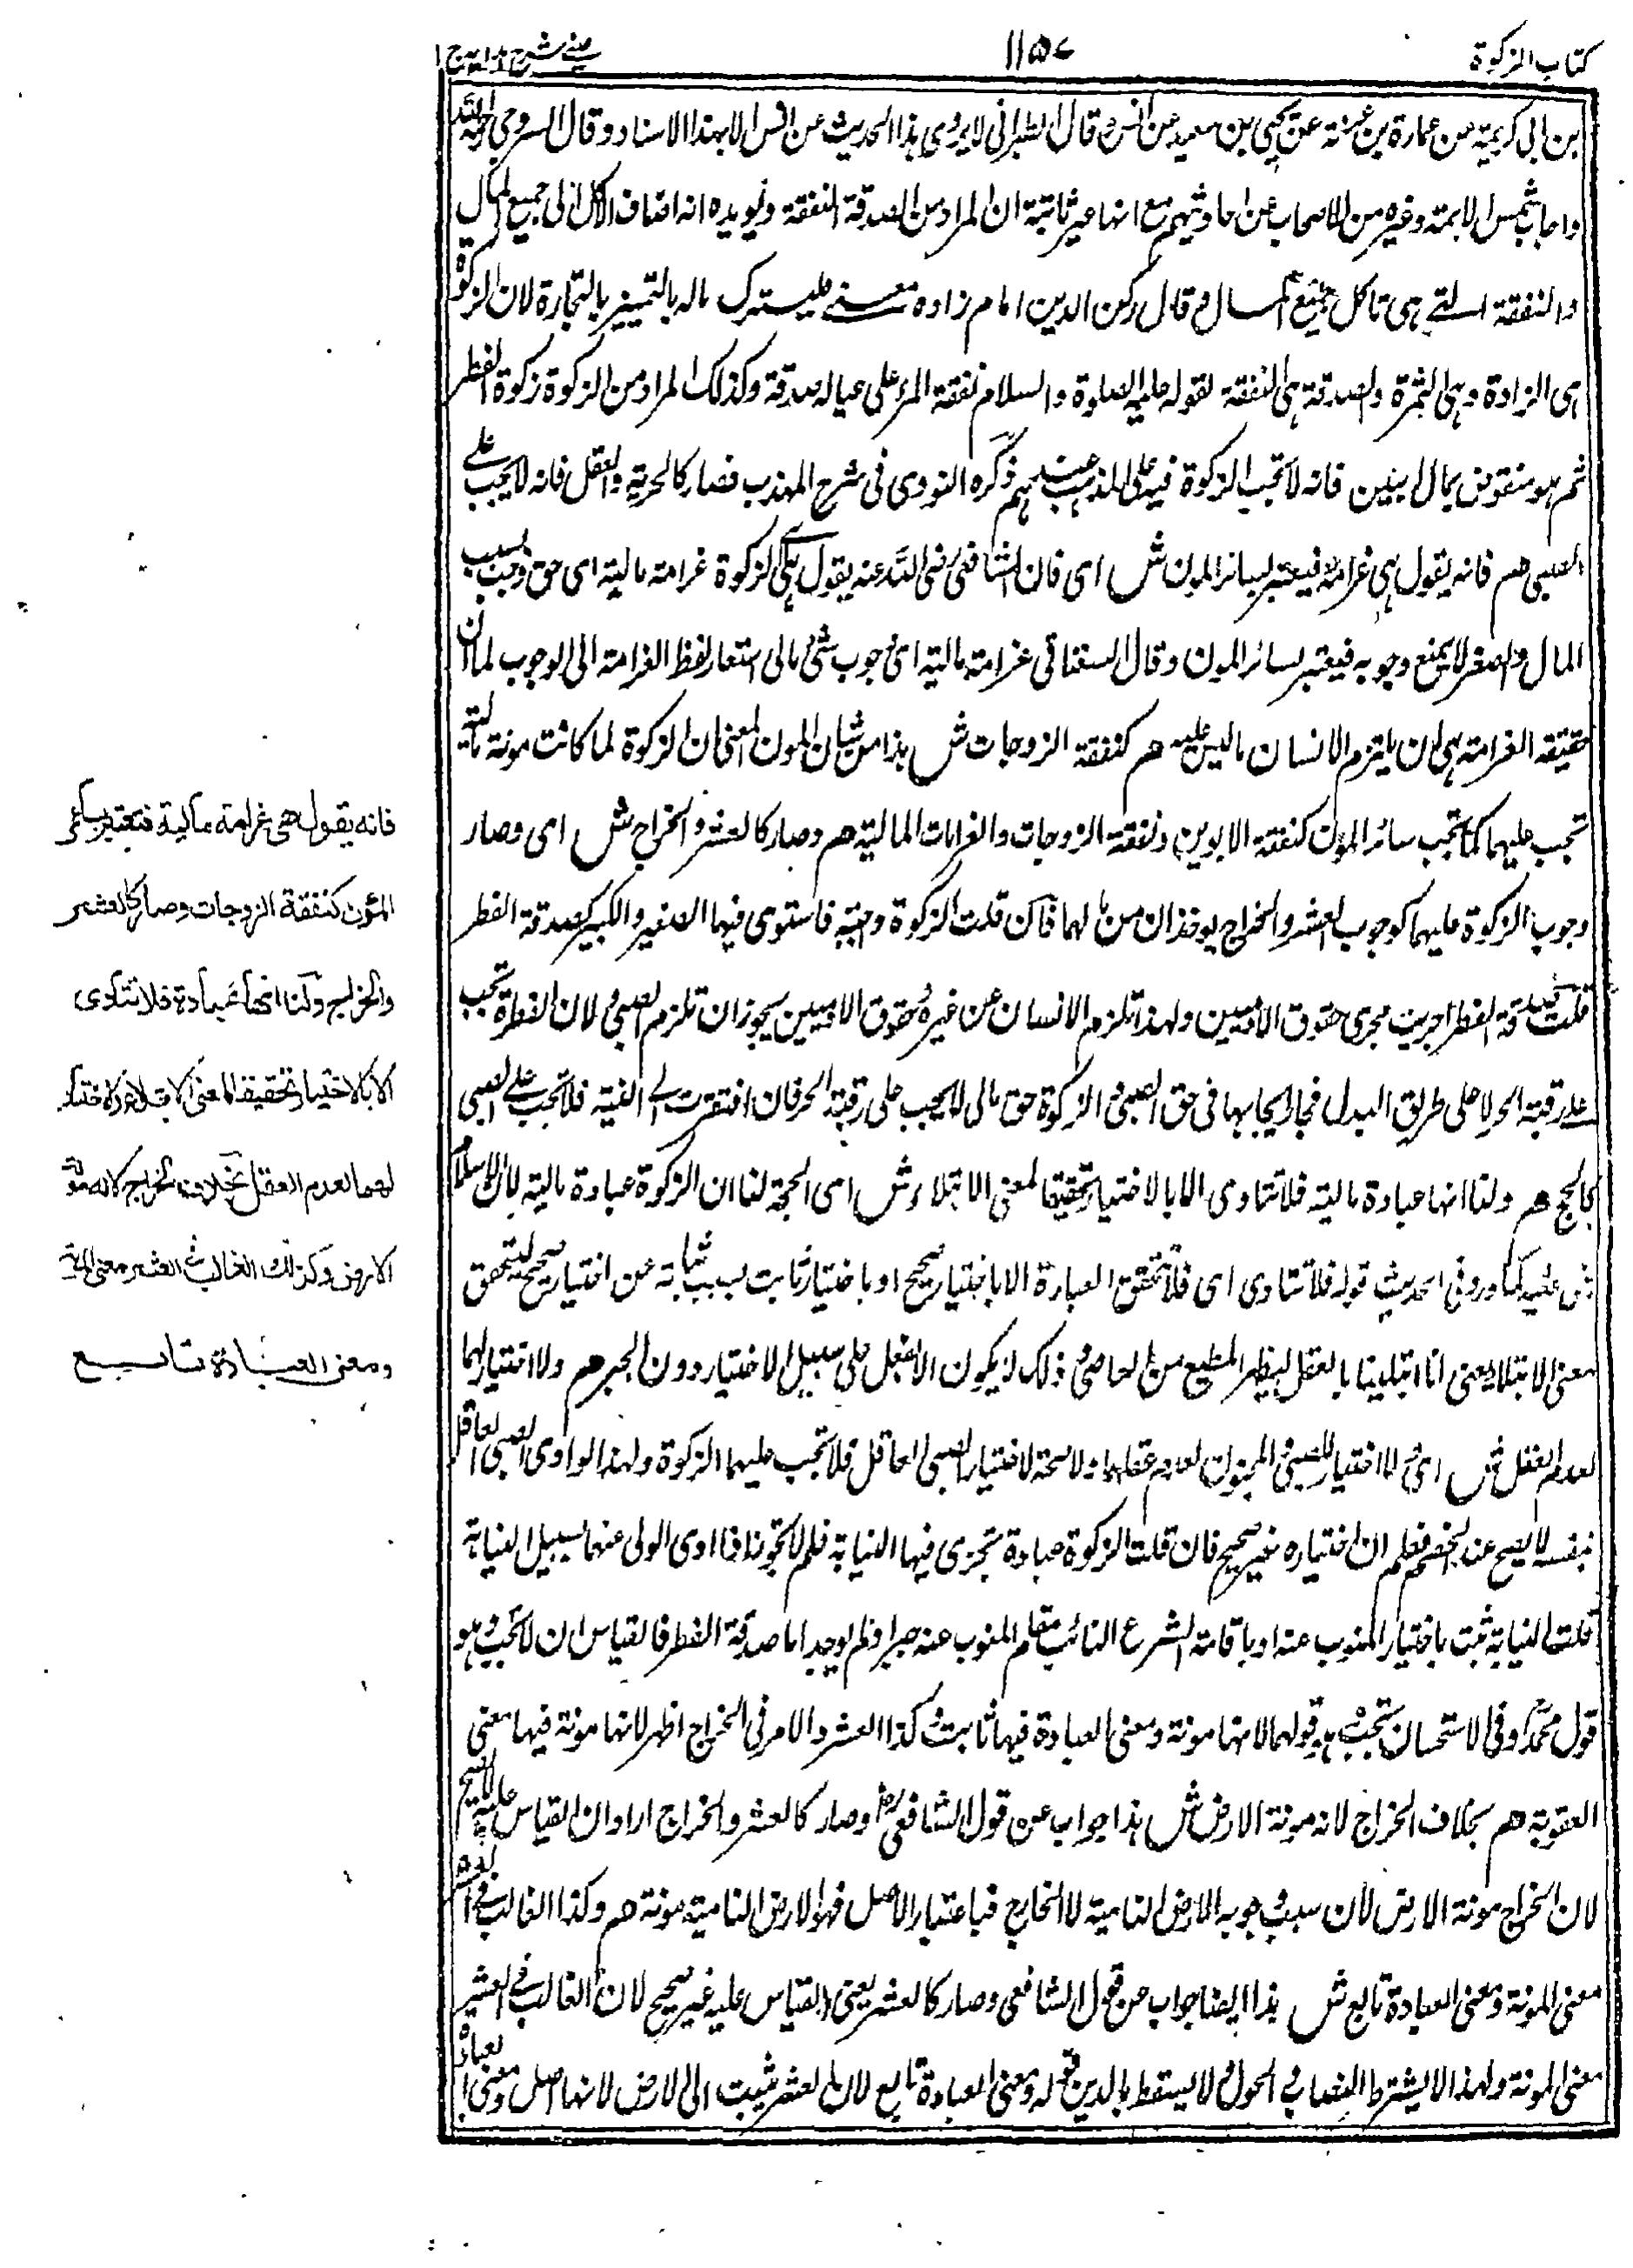 كتاب الزكوة
١١٥٧
عینے شرح ہدایہ ج ١
بن ابى كريمة عن عمارة بن غزية عن يحيى بن سعيد عن انس وقال الطبرانى لا يروى هذا الحديث عن انس الا بهذا الاسناد وقال السروجى رحمه الله
واجاب شمس الائمة وغيره من الاصحاب عن احاديثهم مع انها غير ثابتة ان المراد من الصدقة النفقة ويؤيده انه اضاف الاكل الى جميع المال
والنفقة التے هى تاكل جميع المال وقال ركن الدين امام زاده معنے فليترك ماله بالتمييز بالتجارة لان الزكوة
هى الزادة وهى الثمرة والصدقة هى النفقة لقوله عليه الصلوة والسلام نفقة المرء على عياله صدقة وكذلك المراد من الزكوة زكوة الفطر
ثم هو منقوض بمال الجنين فانه لا تجب الزكوة فيه على المذهب عندهم ذكره النووى فى شرح المهذب فصار كالحرية والعقل فانه لا يجب علے
الصبى هم فانه يقول هى غرامة فيعتبر بسائر المؤن ش اى فان الشافعى رضى الله عنه يقول بان الزكوة غرامة مالية اى حق وجب بسبب
المال والصغر لا يمنع وجوبه فيعتبر بسائر المؤن وقال السغناقى غرامة مالية اى وجوب شئ مالى استعار لفظ الغرامة الى الوجوب لما ان
حقيقة الغرامة هى ان يلتزم الانسان ما ليس عليه هم كنفقة الزوجات ش هذا من شان المؤن المعنى ان الزكوة لما كانت مونة مالية
تجب عليهما كما تجب سائر المؤن كنفقة الابوين ونفقة الزوجات والغرامات المالية هم وصار كالعشر والخراج ش اى وصار
وجوب الزكوة عليهما كوجوب العشر والخراج يوخذان من مالهما فان قلت الزكوة واجبة فاستوى فيها الصغير والكبير كصدقة الفطر
قلت صدقة الفطر اجريت مجرى حقوق الآدميين ولهذا تلزم الانسان عن غيره كحقوق الآدميين يجوز ان تلزم الصبى ولان الفطرة تجب
علے رقبة الحر لا على طريق البدل فجاز ايجابها فى حق الصبى والزكوة حق مالى لا يجب على رقبة الحر فان افتقرت الى النية فلا تجب علے الصبى
كالحج هم ولنا انها عبادة مالية فلا تتادى الا بالاختيار تحقيقا لمعنى الابتلاء ش اى الحجة لنا ان الزكوة عبادة مالية لان الاسلام
بنى عليه كما ورد فى الحديث قوله فلا تتادى اى فلا تتحقق العبادة الا باختيار صحيح او باختيار ثابت بسبب نيابة عن اختيار صحيح ليتحقق
معنى الابتلاء يعنى انا ابتلينا بالعقل ليظهر المطيع من العاصى وذلك لا يكون الا بفعل على سبيل الاختيار دون الجبر هم ولا اختيار لهما
لعدم العقل ش اى لا اختيار للصبى والمجنون لعدم عقلهما ولا صحة لاختيار الصبى العاقل فلا تجب عليهما الزكوة ولهذا لو ادى الصبى العاقل
بنفسه لا يصح عند الخصم فعلم ان اختياره غير صحيح فان قلت الزكوة عبادة تجزى فيها النيابة فلم لا تجوز اذا ادى الولى عنهما بسبيل النيابة
قلت النيابة تثبت باختيار المنوب عنه او باقامة الشرع النائب مقام المنوب عنه جبرا ولم يوجد اما صدقة الفطر فالقياس ان لا تجب وهو
قول محمد وفى الاستحسان تجب وهو قولهما لانها مونة ومعنى العبادة فيها ثابت وكذا العشر والامر فى الخراج اظهر لانها مونة فيها معنى
العقوبة هم بخلاف الخراج لانه مونة الارض ش هذا جواب عن قول الشافعى وصار كالعشر والخراج اراد ان القياس عليه لا يصح
لان الخراج مونة الارض لان سبب وجوبه الارض النامية لا الخارج فباعتبار الاصل فهو الارض النامية مونة هم وكذا الغالب فى العشر
معنى المونة ومعنى العبادة تابع ش هذا ايضا جواب عن قول الشافعى وصار كالعشر يعنى القياس عليه غير صحيح لان الغالب فے العشر
معنى المونة ولهذا لا يشترط النصاب والحول ولا يسقط بالدين قوله ومعنى العبادة تابع لان العشر يثبت الى الارض لانها اصل ومعنى العبادة
فانه يقول هى غرامة مالية فتعتبر بسائر
المؤن كنفقة الزوجات وصار كالعشر
والخراج ولنا انها عبادة فلا تتادى
الا بالاختيار تحقيقا لمعنى الابتلاء ولا اختيار
لهما لعدم العقل بخلاف الخراج لانه مونة
الارض وكذلك الغالب فى العشر معنى المونة
ومعنى العبادة تابع